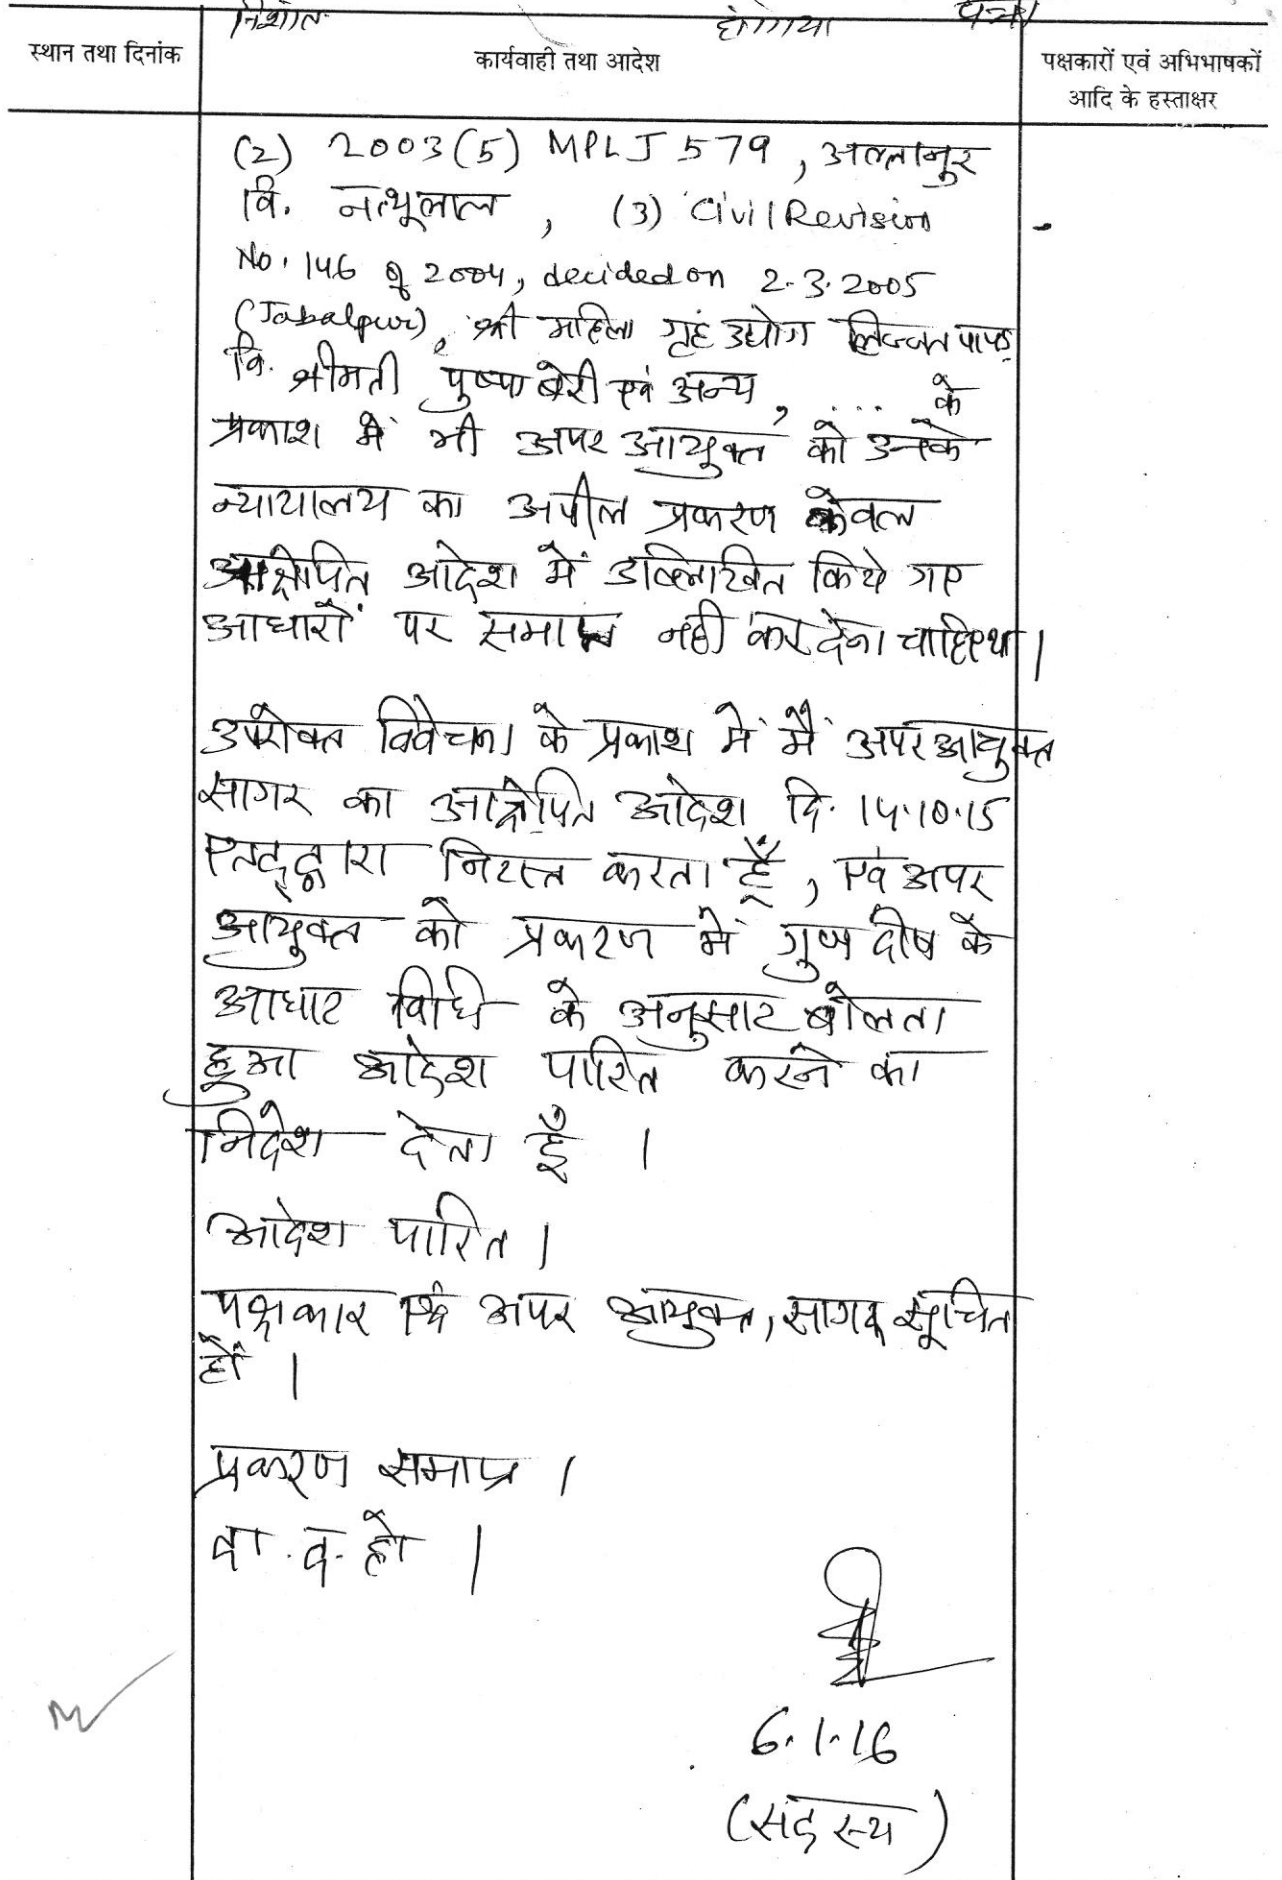 निशांत होगया पन्ना
स्थान तथा दिनांक
कार्यवाही तथा आदेश
पक्षकारों एवं अभिभाषकों
आदि के हस्ताक्षर
(2) 2003(5) MPLJ 579, अल्लानुर
वि. नत्थूलाल, (3) Civil Revision
No. 146 of 2004, decided on 2.3.2005
(Jabalpur), श्री महिला गृह उद्योग लिज्जत पापड़
वि. श्रीमती पुष्पा बेरी एवं अन्य, .... के
प्रकाश में भी अपर आयुक्त को उनके
न्यायालय का अपील प्रकरण केवल
आक्षेपित आदेश में उल्लिखित किये गए
आधारों पर समाप्त नहीं कर देना चाहिए था।
उपरोक्त विवेचना के प्रकाश में मैं अपर आयुक्त
सागर का आक्षेपित आदेश दि. 14.10.15
एतद्द्वारा निरस्त करता हूँ, एवं अपर
आयुक्त को प्रकरण में गुण दोष के
आधार विधि के अनुसार बोलता
हुआ आदेश पारित करने का
निर्देश देता हूँ ।
आदेश पारित ।
पक्षकार एवं अपर आयुक्त, सागर सूचित
हों ।
प्रकरण समाप्त ।
दा. द. हो ।
6.1.16
(सदस्य)